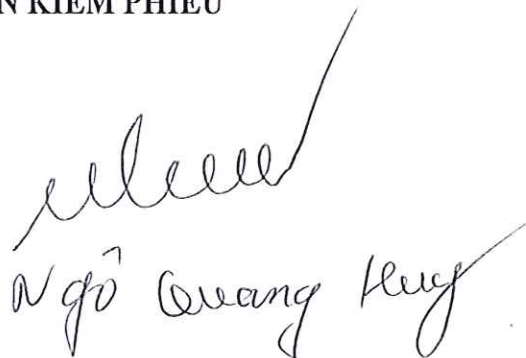 N KIỂM PHIẾU
Ngô Quang Huy